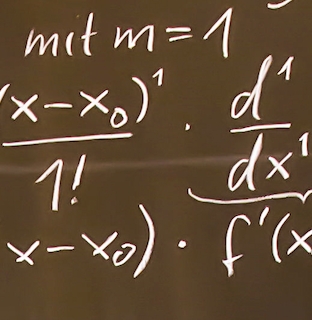 mit m = 1
(x-x₀)¹/1! · d¹/dx¹
x-x₀) · f'(x